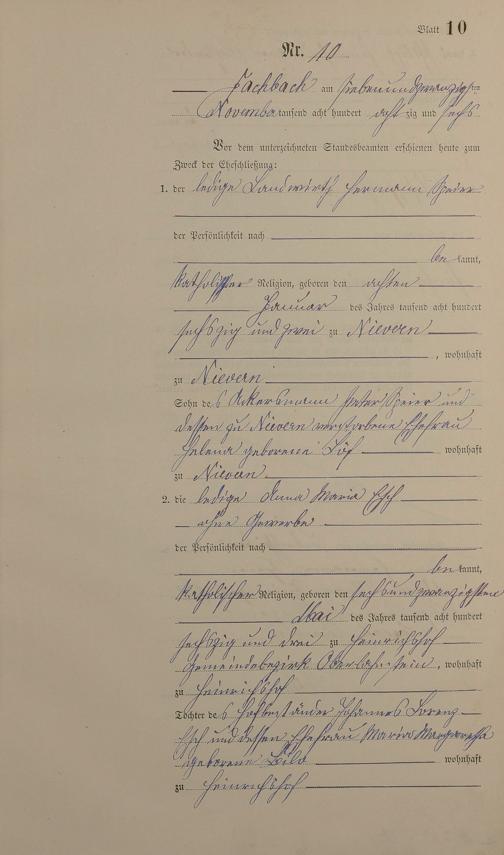 Blatt 10
Nr. 10
Fachbach am siebenundzwanzigsten
November tausend acht hundert acht zig und sechs
Vor dem unterzeichneten Standesbeamten erschienen heute zum
Zweck der Eheschließung:
1. der ledige Landwirth Hermann Speier
der Persönlichkeit nach
be kannt,
katholischer Religion, geboren den achten
Januar des Jahres tausend acht hundert
sechszig und zwei zu Nievern
, wohnhaft
zu Nievern
Sohn des Ackersmann Peter Speier und
dessen zu Nievern verstorbene Ehefrau
Helena geborene wohnhaft
zu Nievern
2. die ledige Anna Maria Esch
ohne Gewerbe
der Persönlichkeit nach
be kannt,
katholischer Religion, geboren den sechsundzwanzigsten
Mai des Jahres tausend acht hundert
sechszig und drei zu Heinrichshof
Gemeindebezirk Oberlahnstein, wohnhaft
zu Heinrichshof
Tochter des Hofbeständer Johannes Lorenz
Esch und dessen Ehefrau Maria Margaretha
geborene wohnhaft
zu Heinrichshof